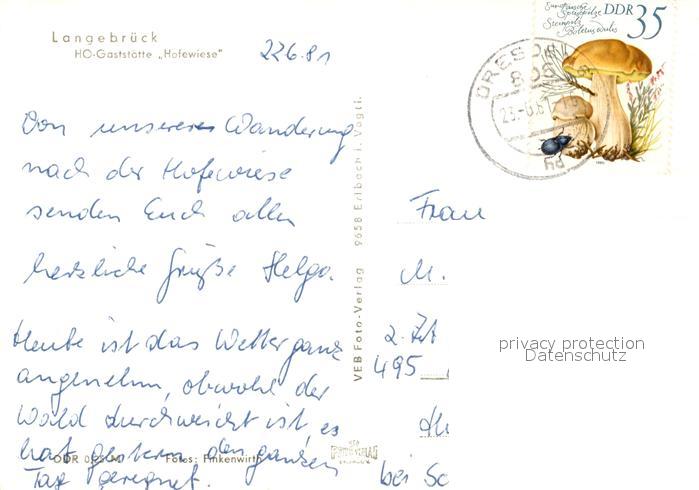 Langebrück
HO-Gaststätte „Hofewiese"
22.6.81
Von unserer Wanderung
nach der Hofewiese
senden Euch allen
herzliche Grüße Helga.
Heute ist das Wetter ganz
angenehm, obwohl der
Wald durchweicht ist, es
hat gestern den ganzen
Tag geregnet.
Fotos: Finkenwirth
VEB Foto-Verlag 9658 Erlbach i. Vogtl.
Europäische Speisepilze
Steinpilz
Boletus edulis
DDR 35
DRESDEN
806
23.-6.81
Frau
M.
2. Zt
495
bei Sc
privacy protection
Datenschutz